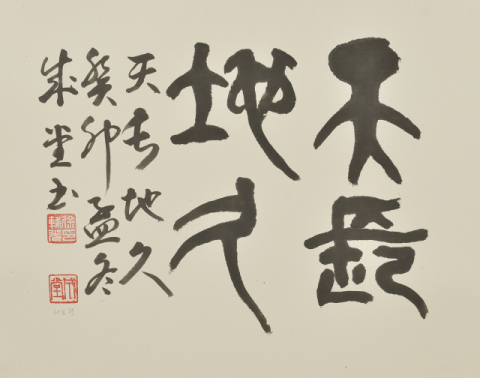 天長
地久
天長地久
癸卯孟冬
成堂書
成堂